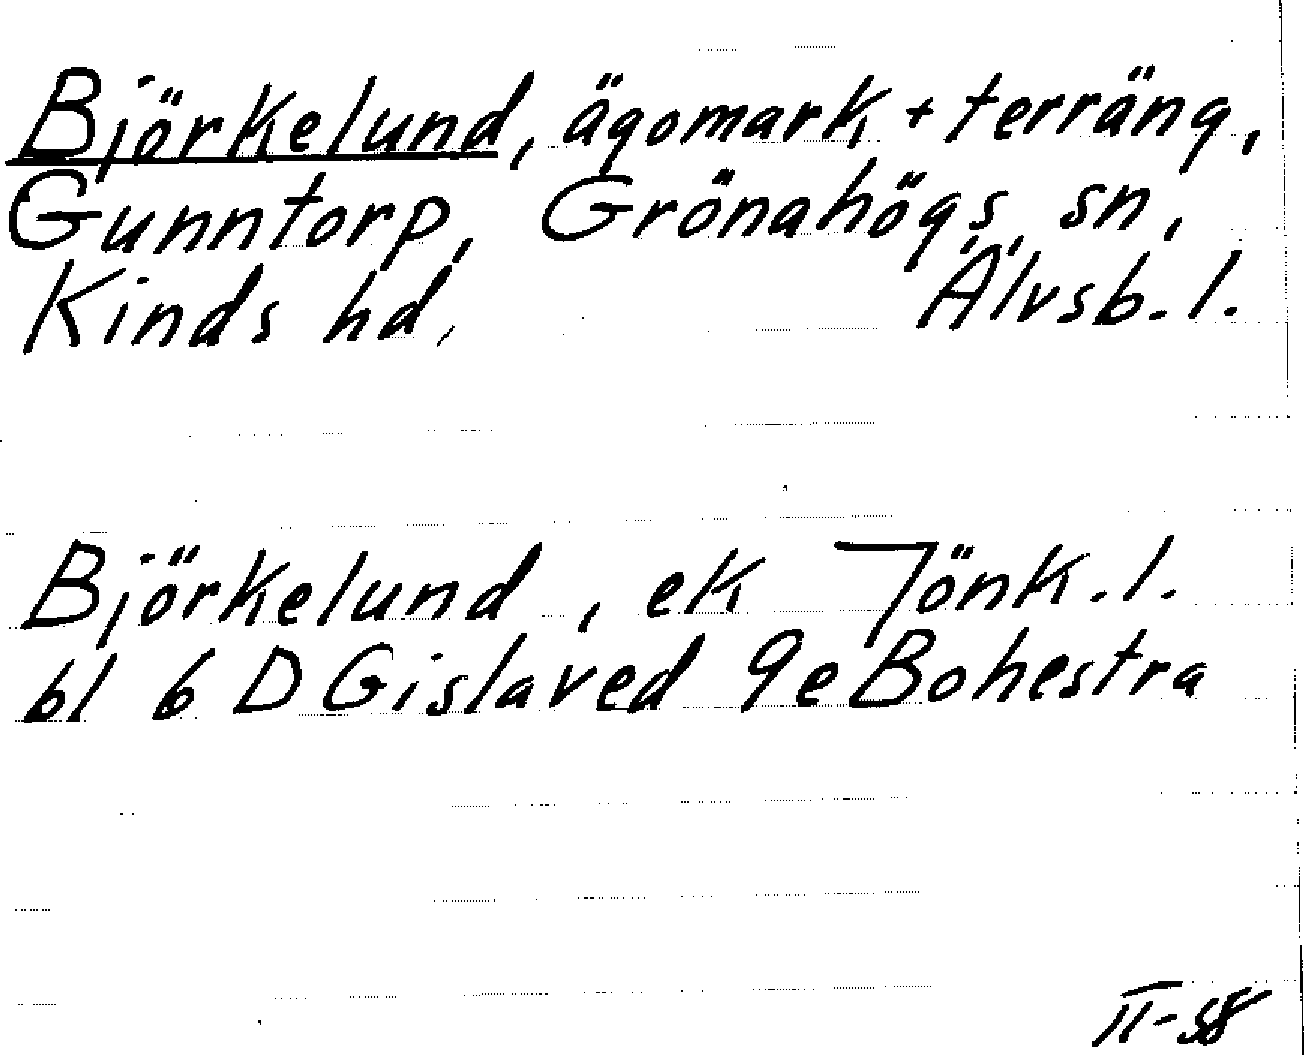 Björkelund, ägomark + terräng,
Gunntorp, Grönahögs sn,
Kinds hd, Älvsb. l.
Björkelund, ek Jönk. l.
bl 6 D Gislaved 9e Bohestra
II-58